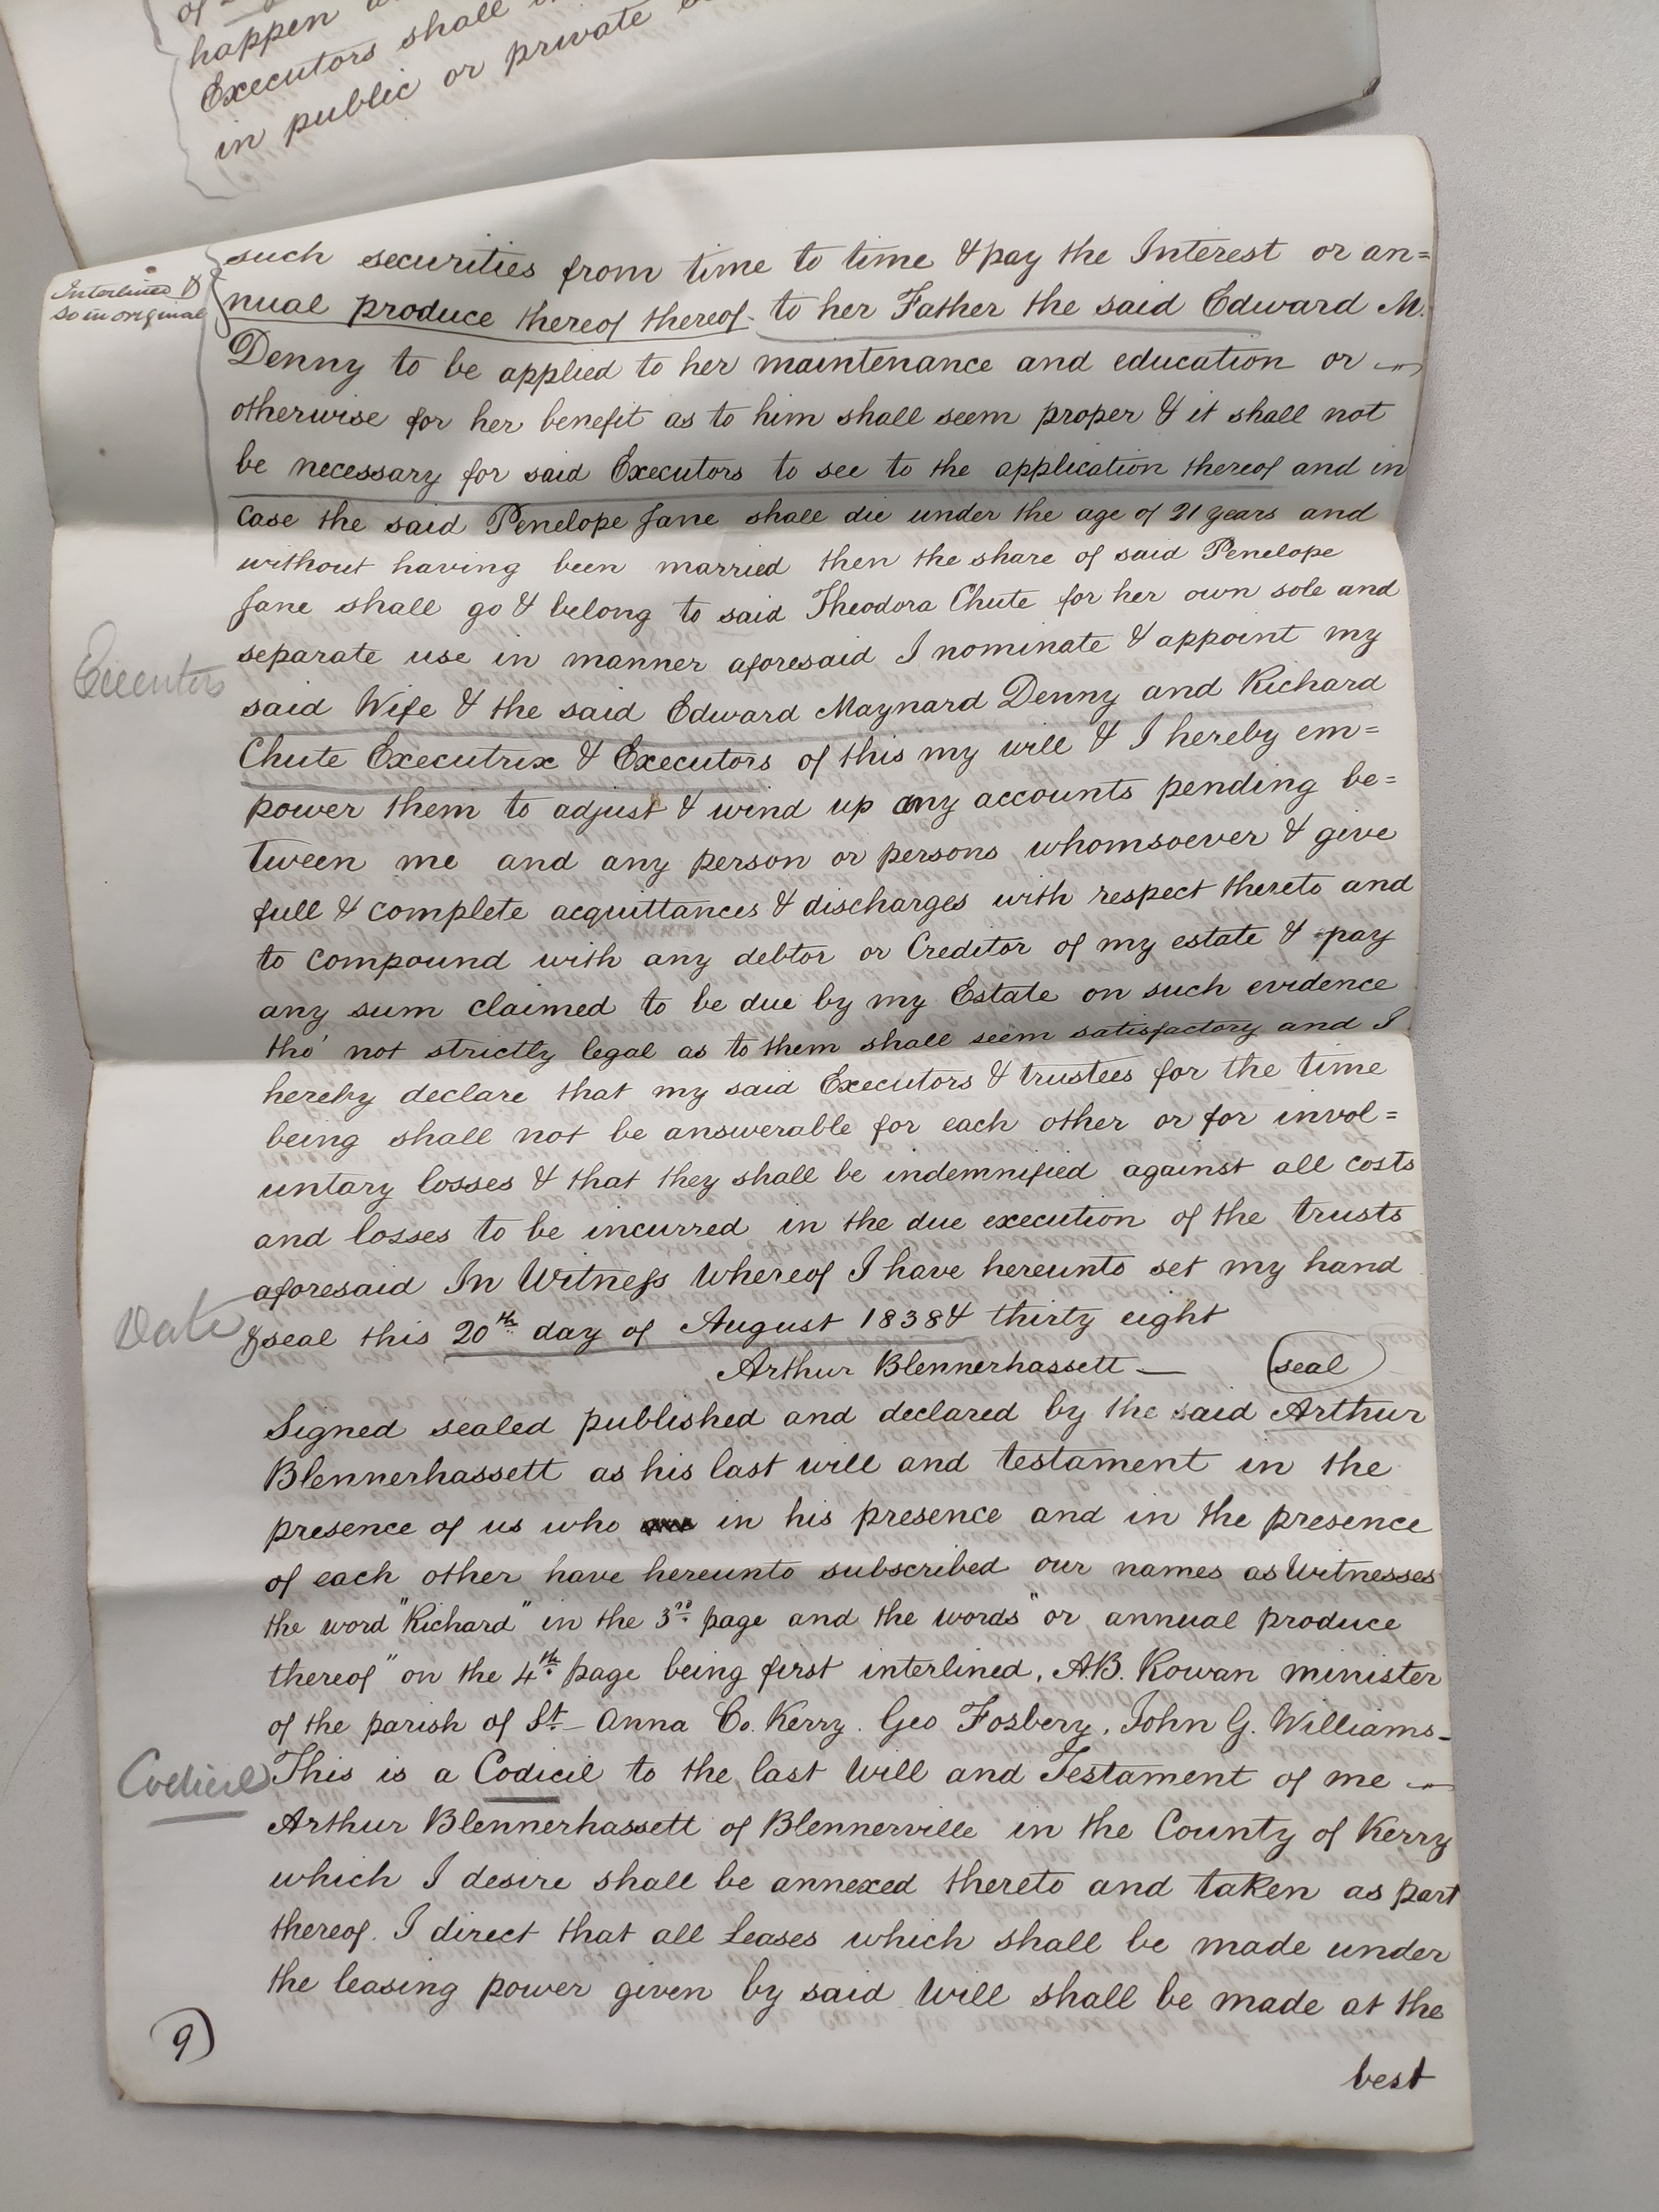 happen
Executors shall
in public or private
Interlined &
so in original
such securities from time to time & pay the Interest or an=
nual produce thereof thereof to her Father the said Edward M.
Denny to be applied to her maintenance and education or
otherwise for her benefit as to him shall seem proper & it shall not
be necessary for said Executors to see to the application thereof and in
case the said Penelope Jane shall die under the age of 21 years and
without having been married then the share of said Penelope
Jane shall go & belong to said Theodora Chute for her own sole and
separate use in manner aforesaid I nominate & appoint my
Executors
said Wife & the said Edward Maynard Denny and Richard
Chute Executrix & Executors of this my will & I hereby em=
power them to adjust & wind up any accounts pending be=
tween me and any person or persons whomsoever & give
full & complete acquittances & discharges with respect thereto and
to compound with any debtor or Creditor of my estate & pay
any sum claimed to be due by my Estate on such evidence
tho' not strictly legal as to them shall seem satisfactory and I
hereby declare that my said Executors & trustees for the time
being shall not be answerable for each other or for invol=
untary losses & that they shall be indemnified against all costs
and losses to be incurred in the due execution of the trusts
aforesaid In Witness Whereof I have hereunto set my hand
Date
& seal this 20th day of August 1838 & thirty eight
Arthur Blennerhassett — seal
Signed sealed published and declared by the said Arthur
Blennerhassett as his last will and testament in the
presence of us who in his presence and in the presence
of each other have hereunto subscribed our names as Witnesses
the word "Richard" in the 3rd page and the words "or annual produce
thereof" on the 4th page being first interlined, A.B. Rowan minister
of the parish of St Anna Co. Kerry. Geo Fosbery, John G. Williams-
Codicil
This is a Codicil to the last Will and Testament of me
Arthur Blennerhassett of Blennerville in the County of Kerry
which I desire shall be annexed thereto and taken as part
thereof. I direct that all Leases which shall be made under
the leasing power given by said Will shall be made at the
9)
best